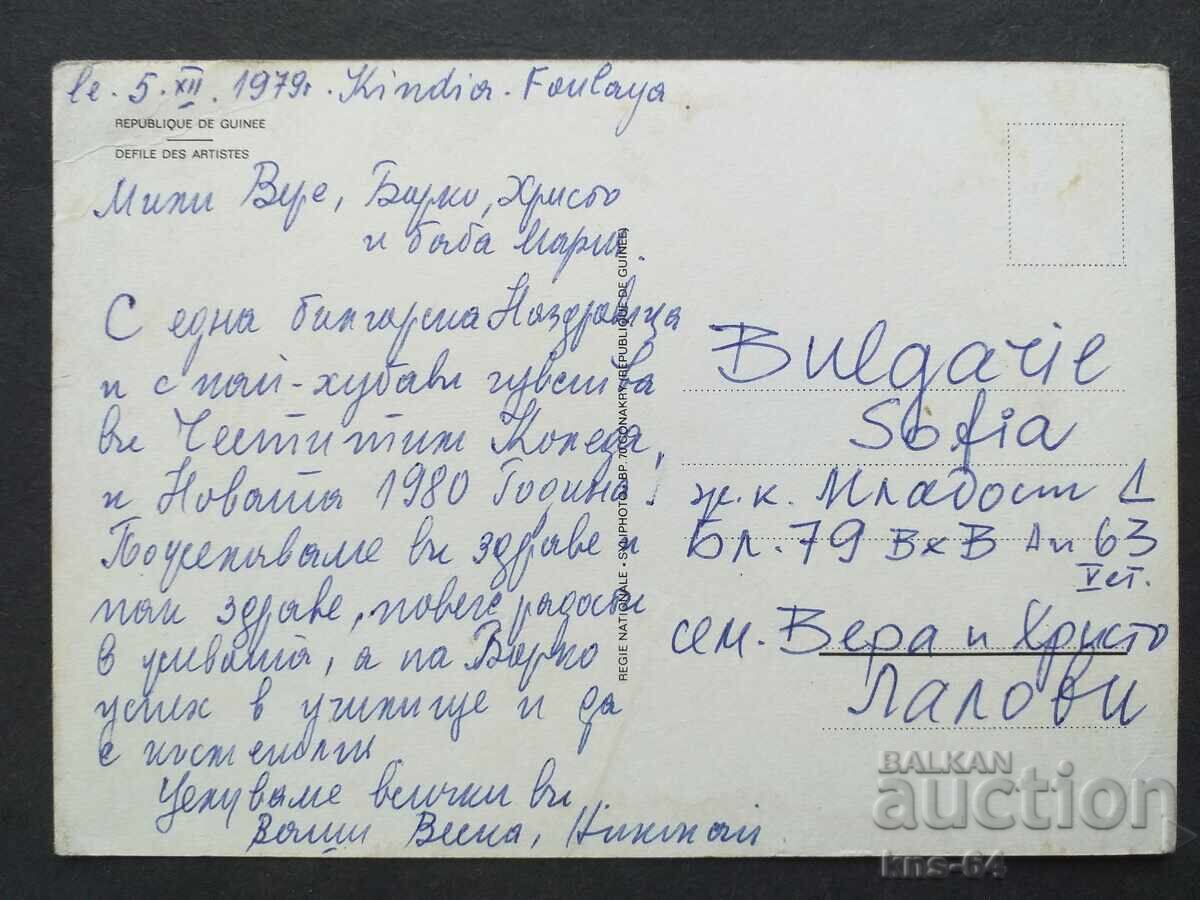 le. 5. XII. 1979г. Kindia - Foulaya
REPUBLIQUE DE GUINEE
DEFILE DES ARTISTES
Мили Вере, Борко, Христо
и баба Мария.
С една българска Наздравица
и с най-хубави чувства
ви Честитим Коледа,
и Новата 1980 Година!
Пожелаваме ви здраве и
пак здраве, повече радости
в живота, а на Борко
успех в училище и да
е
Целуваме всички ви,
Ваши Весна, Николай.
REGIE NATIONALE - SYLIPHOTO - BP. 70 CONAKRY (REPUBLIQUE DE GUINEE)
Bulgarie
Sofia
ж.к. Младост 1
Бл. 79 Вх В Ап 63
V ет.
сем. Вера и Христо
Лалови
BALKAN
auction
kns-64